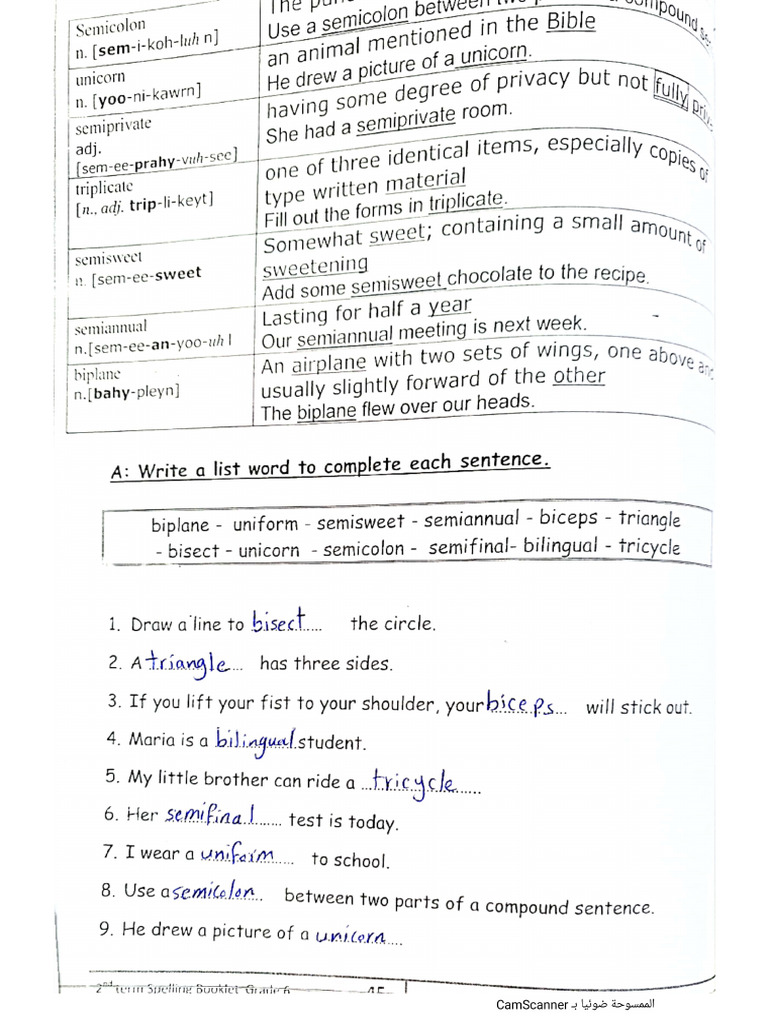 The
Semicolon
n. [sem-i-koh-luh n]
Use a semicolon between two compound
unicorn
n. [yoo-ni-kawrn]
an animal mentioned in the Bible
He drew a picture of a unicorn.
semiprivate
adj.
[sem-ee-prahy-vuh-see]
having some degree of privacy but not fully
She had a semiprivate room.
triplicate
[n., adj. trip-li-keyt]
one of three identical items, especially copies of
type written material
Fill out the forms in triplicate.
semisweet
n. [sem-ee-sweet
Somewhat sweet; containing a small amount of
sweetening
Add some semisweet chocolate to the recipe.
semiannual
n.[sem-ee-an-yoo-uh l
Lasting for half a year
Our semiannual meeting is next week.
biplane
n.[bahy-pleyn]
An airplane with two sets of wings, one above and
usually slightly forward of the other
The biplane flew over our heads.
A: Write a list word to complete each sentence.
biplane - uniform - semisweet - semiannual - biceps - triangle
- bisect - unicorn - semicolon - semifinal- bilingual - tricycle
1. Draw a line to bisect..... the circle.
2. A triangle... has three sides.
3. If you lift your fist to your shoulder, your biceps... will stick out.
4. Maria is a bilingual student.
5. My little brother can ride a ...tricycle......
6. Her semifinal....... test is today.
7. I wear a uniform..... to school.
8. Use a semicolon.. between two parts of a compound sentence.
9. He drew a picture of a unicorn....
2nd term Spelling Booklet Grade 6 45
الممسوحة ضوئيا بـ CamScanner